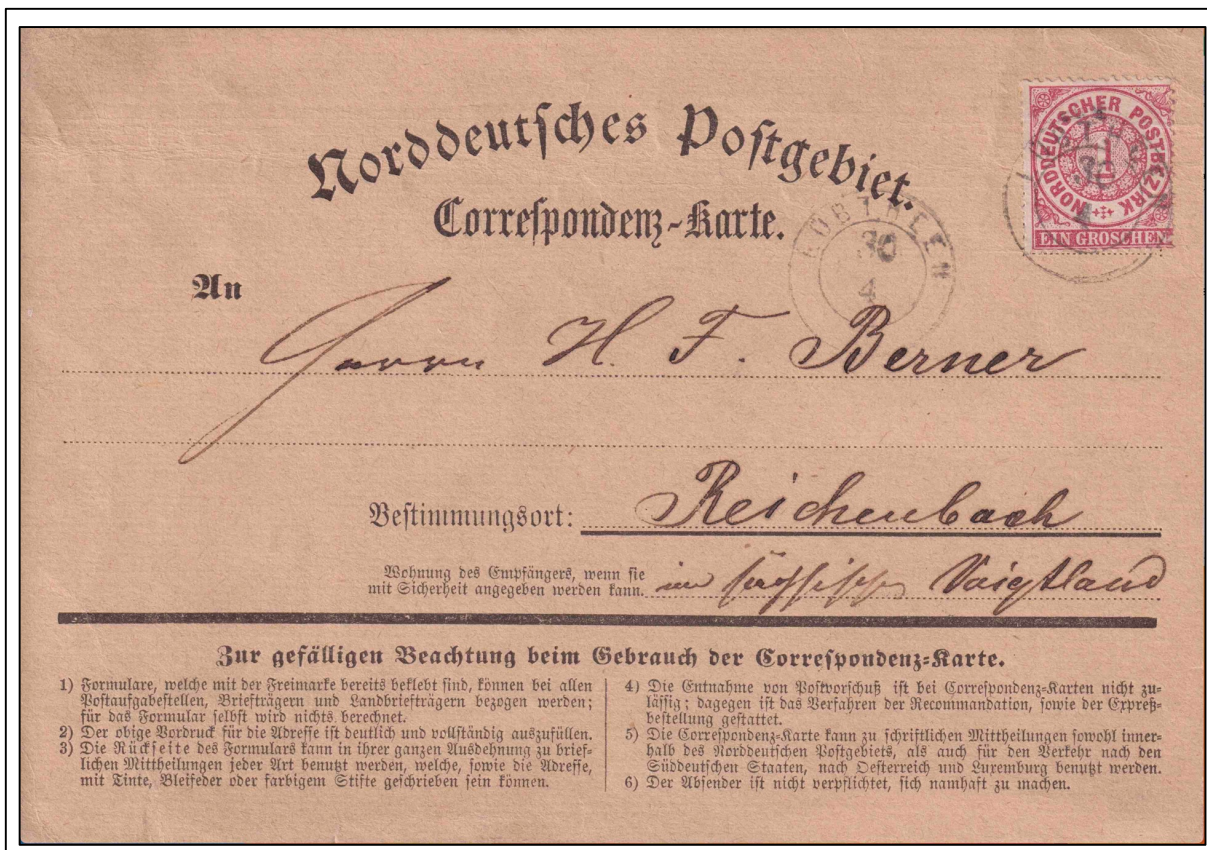 Norddeutsches Postgebiet.
Correspondenz-Karte.
NORDDEUTSCHER POSTBEZIRK
1
EIN GROSCHEN
30
4
An
Herrn H. F. Berner
Bestimmungsort: Reichenbach
Wohnung des Empfängers, wenn sie
mit Sicherheit angegeben werden kann. im sächsischen Voigtland
Zur gefälligen Beachtung beim Gebrauch der Correspondenz-Karte.
1) Formulare, welche mit der Freimarke bereits beklebt sind, können bei allen
Postaufgabestellen, Briefträgern und Landbriefträgern bezogen werden;
für das Formular selbst wird nichts berechnet.
2) Der obige Vordruck für die Adresse ist deutlich und vollständig auszufüllen.
3) Die Rückseite des Formulars kann in ihrer ganzen Ausdehnung zu brief-
lichen Mittheilungen jeder Art benutzt werden, welche, sowie die Adresse,
mit Tinte, Bleifeder oder farbigem Stifte geschrieben sein können.
4) Die Entnahme von Postvorschuß ist bei Correspondenz-Karten nicht zu-
lässig; dagegen ist das Verfahren der Recommandation, sowie der Expreß-
bestellung gestattet.
5) Die Correspondenz-Karte kann zu schriftlichen Mittheilungen sowohl inner-
halb des Norddeutschen Postgebiets, als auch für den Verkehr nach den
Süddeutschen Staaten, nach Oesterreich und Luxemburg benutzt werden.
6) Der Absender ist nicht verpflichtet, sich namhaft zu machen.